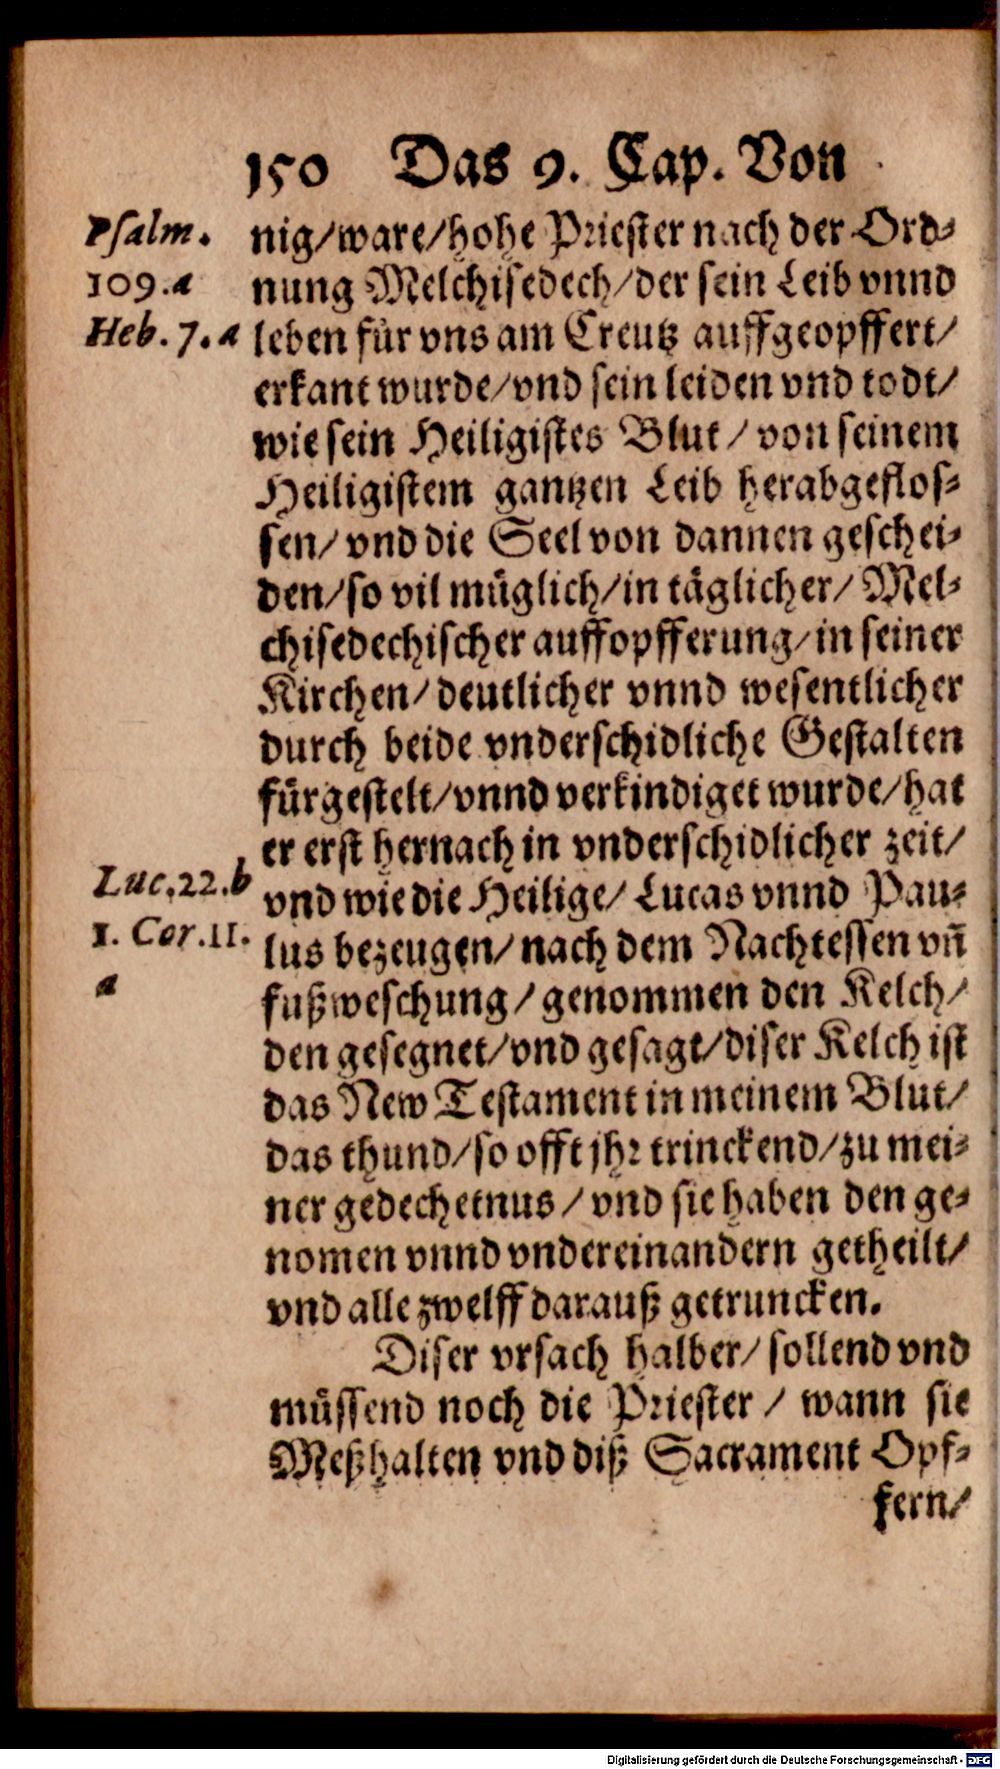 150 Das 9. Cap. Von
Psalm.
109.a
Heb. 7. a
nig/ware/hohe Priester nach der Ord-
nung Melchisedech/der sein Leib vnnd
leben für vns am Creutz auffgeopffert/
erkant wurde/vnd sein leiden vnd todt/
wie sein Heiligistes Blut/ von seinem
Heiligistem gantzen Leib herabgeflos-
sen/ vnd die Seel von dannen geschei-
den/so vil müglich/in täglicher/ Mel-
chisedechischer auffopfferung/in seiner
Kirchen/ deutlicher vnnd wesentlicher
durch beide vnderschidliche Gestalten
fürgestelt/vnnd verkindiget wurde/hat
er erst hernach in vnderschidlicher zeit/
Luc.22.b
1. Cor.11.
a
vnd wie die Heilige/ Lucas vnnd Pau-
lus bezeugen/ nach dem Nachtessen vñ
fußweschung/ genommen den Kelch/
den gesegnet/vnd gesagt/diser Kelch ist
das New Testament in meinem Blut/
das thund/so offt jhr trinckend/zu mei-
ner gedechetnus/ vnd sie haben den ge-
nomen vnnd vndereinandern getheilt/
vnd alle zwelff darauß getruncken.
Diser vrsach halber/ sollend vnd
müssend noch die Priester/ wann sie
Meßhalten vnd diß Sacrament Opf-
fern/
Digitalisierung gefördert durch die Deutsche Forschungsgemeinschaft - DFG